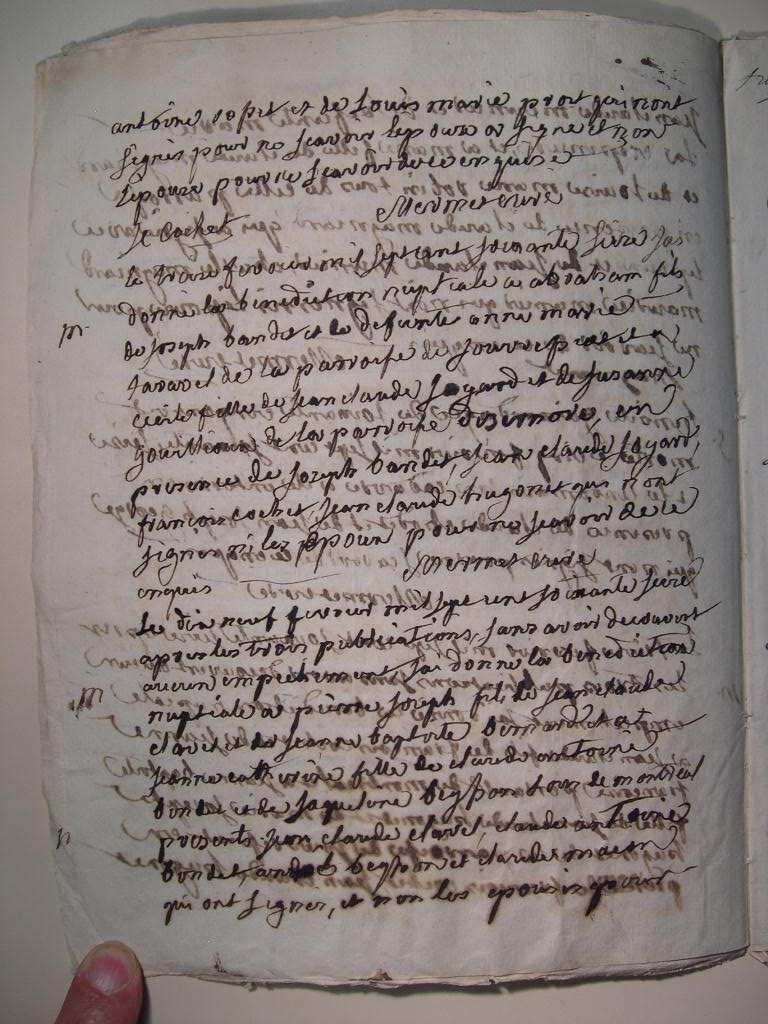 antoine et de Louis marie prost qui nont
signés pour ne scavoir lepoux a signe et non
lepouse pour ne scavoir de ce enquise
Mermet vicre
Le Cochet
Le troise fevrier mil sept cent soixante seize jai
donne la benediction nuptiale a abraham fils
m. de joseph bandet et de defunte anne marie
de la parroise de et a
cecile fille de jean claude joyard et de susanne
de la parroise en
presence de joseph bandet, jean claude joyard,
francois cochet, jean claude hugonet qui nont
signer ni les Epoux pour ne scavoir de ce
enquis Mermet vicre
Le dix neuf fevrier mil sept cent soixante seize
apres les trois publications, sans avoir decouvert
aucun empechement jai donne la benediction
m nuptiale a pierre joseph fils de jean claude
clavel et de jeanne baptiste et a
jeanne catherine fille de claude antoine
bondet et de jaqueline tous de montreal
presents jean claude clavel, claude antoine
bondet, et claude macon
qui ont signer, et non les